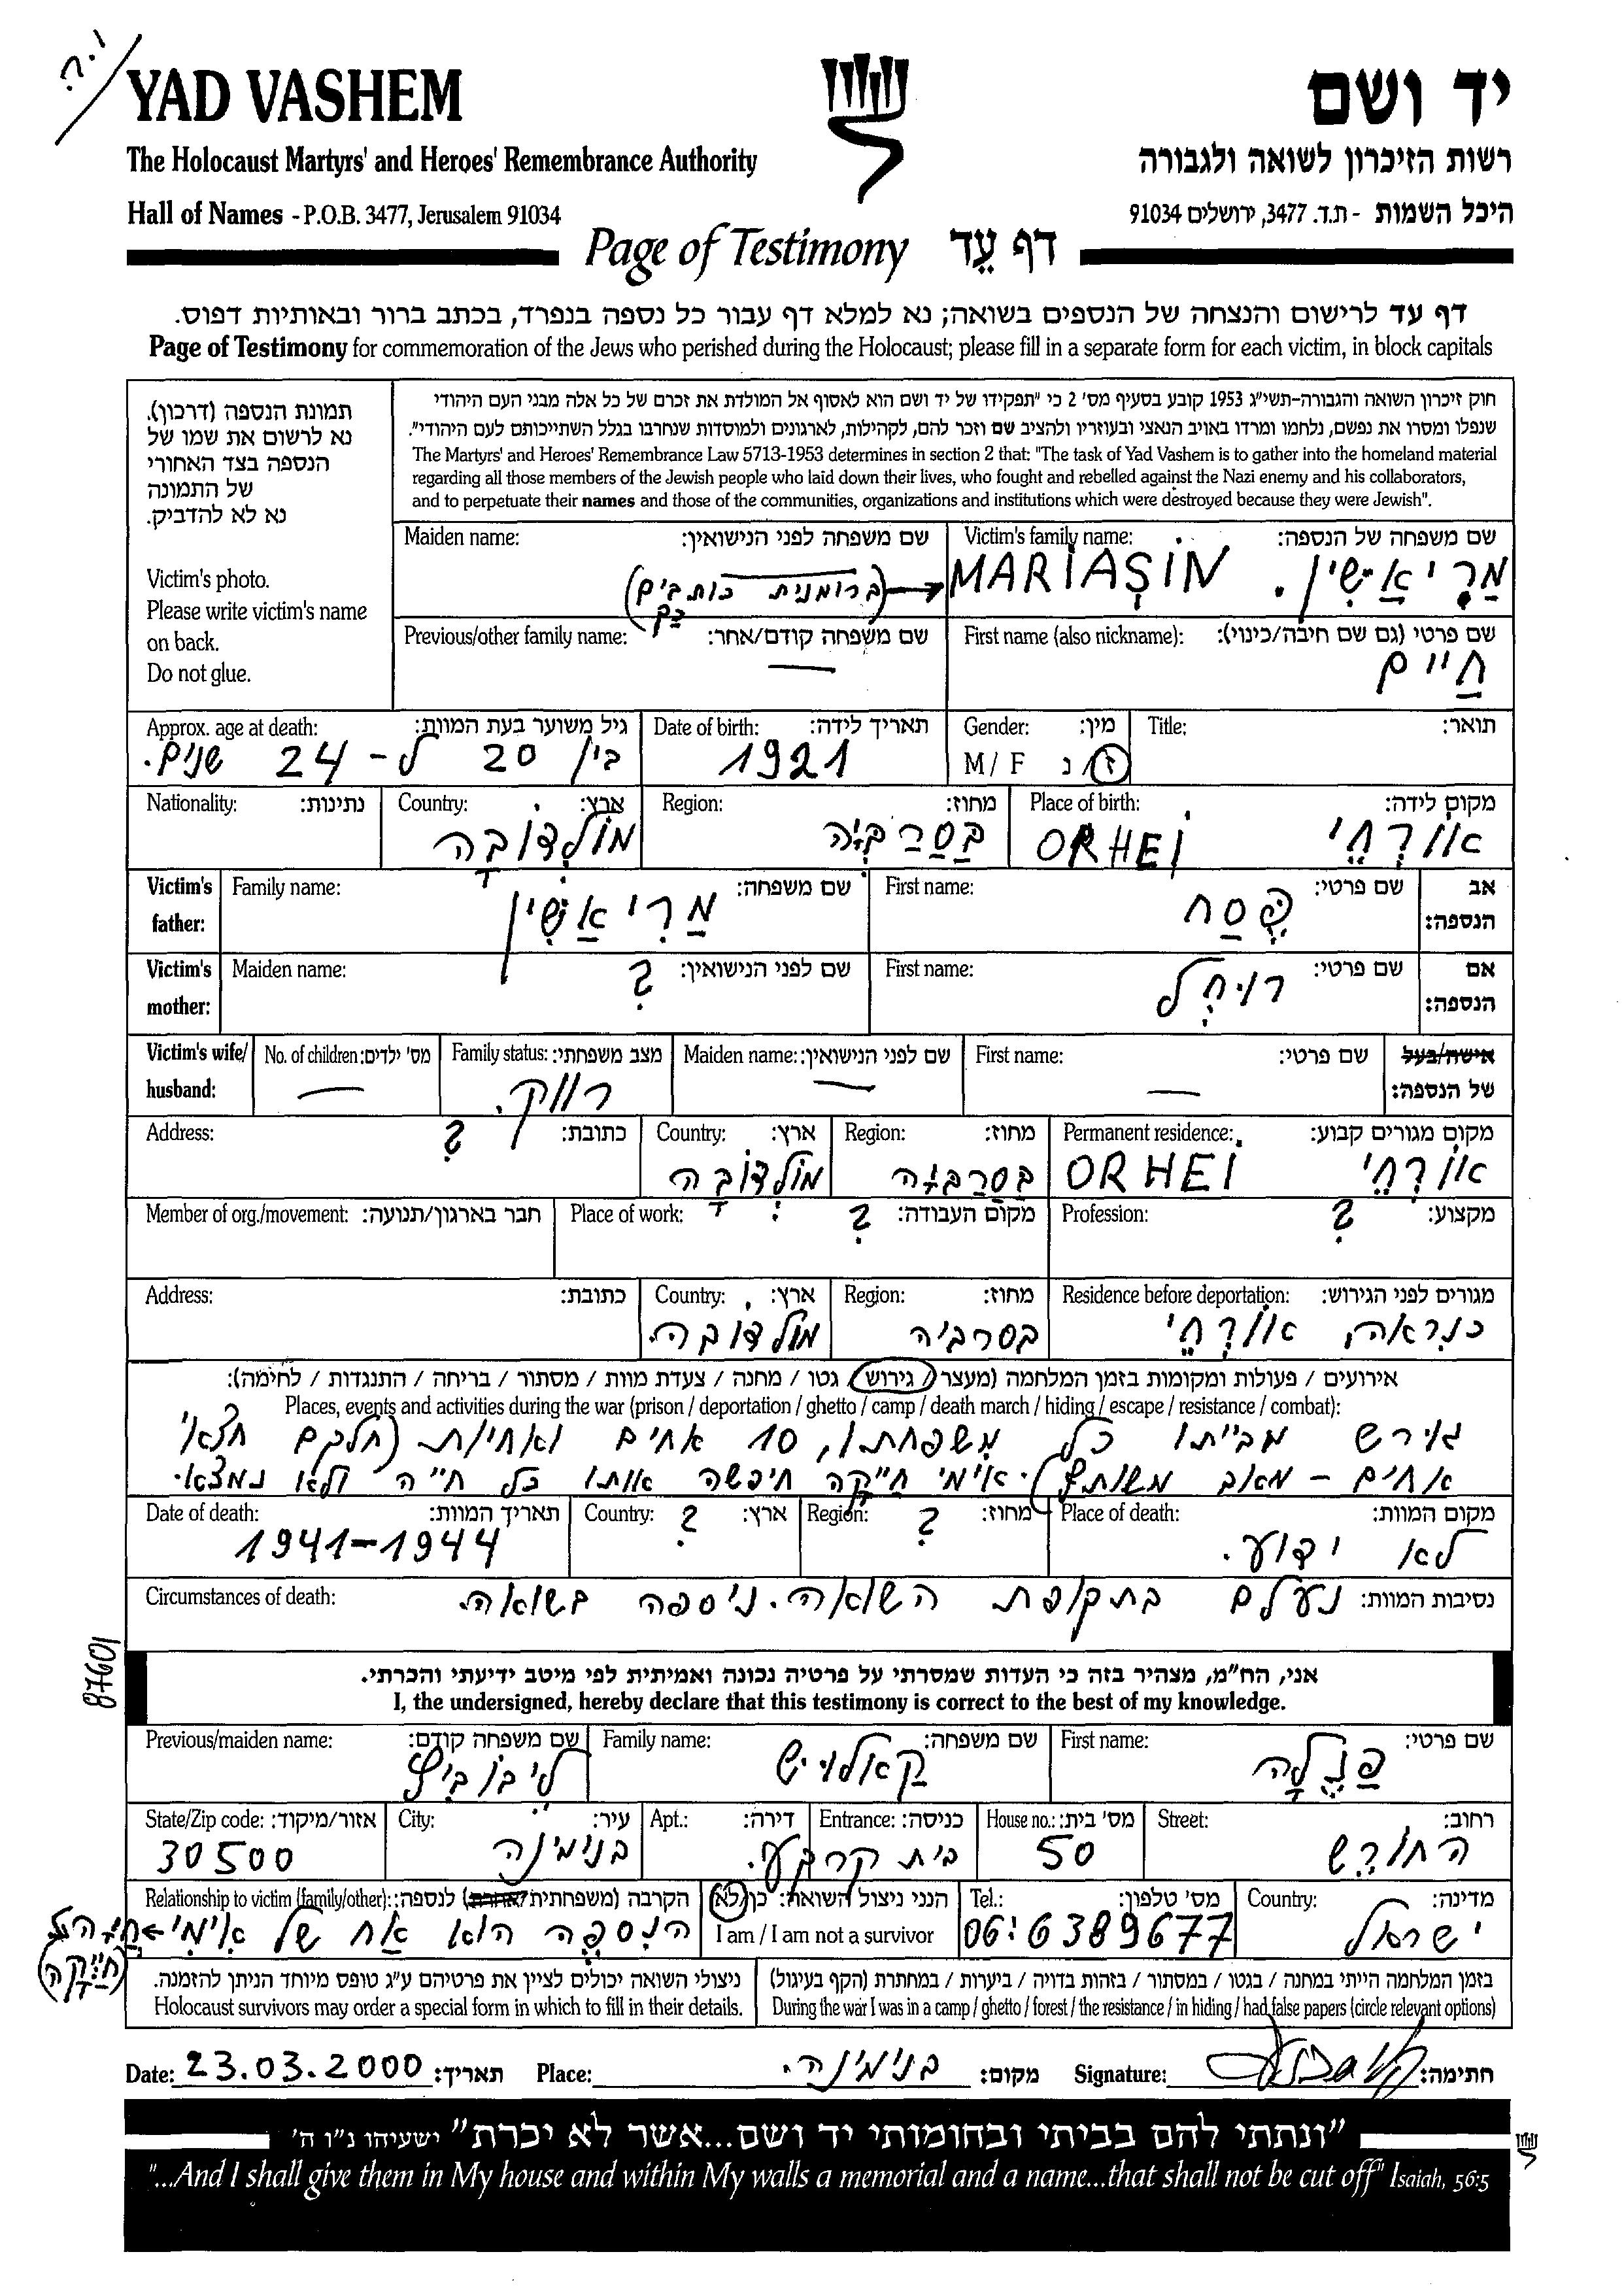 ו.ה.
YAD VASHEM יד ושם
The Holocaust Martyrs' and Heroes' Remembrance Authority רשות הזיכרון לשואה ולגבורה
Hall of Names - P.O.B. 3477, Jerusalem 91034 היכל השמות - ת.ד. 3477, ירושלים 91034
Page of Testimony דף עֵד
דף עד לרישום והנצחה של הנספים בשואה; נא למלא דף עבור כל נספה בנפרד, בכתב ברור ובאותיות דפוס.
Page of Testimony for commemoration of the Jews who perished during the Holocaust; please fill in a separate form for each victim, in block capitals
תמונת הנספה (דרכון).
נא לרשום את שמו של
הנספה בצד האחורי
של התמונה
נא לא להדביק.
Victim's photo.
Please write victim's name
on back.
Do not glue.
חוק זיכרון השואה והגבורה-תשי"ג 1953 קובע בסעיף מס' 2 כי "תפקידו של יד ושם הוא לאסוף אל המולדת את זכרם של כל אלה מבני העם היהודי
שנפלו ומסרו את נפשם, נלחמו ומרדו באויב הנאצי ובעוזריו ולהציב שם וזכר להם, לקהילות, לארגונים ולמוסדות שנחרבו בגלל השתייכותם לעם היהודי".
The Martyrs' and Heroes' Remembrance Law 5713-1953 determines in section 2 that: "The task of Yad Vashem is to gather into the homeland material
regarding all those members of the Jewish people who laid down their lives, who fought and rebelled against the Nazi enemy and his collaborators,
and to perpetuate their names and those of the communities, organizations and institutions which were destroyed because they were Jewish".
Maiden name: שם משפחה לפני הנישואין: Victim's family name: שם משפחה של הנספה:
(ברומנית כותבים כך) MARIAŞIN מריאשין.
Previous/other family name: שם משפחה קודם/אחר: First name (also nickname): שם פרטי (גם שם חיבה/כינוי):
— חיים
Approx. age at death: גיל משוער בעת המוות: Date of birth: תאריך לידה: Gender: מין: Title: תואר:
בין 20 ל-24 שנים. 1921 M / F ז/נ
Nationality: נתינות: Country: ארץ: Region: מחוז: Place of birth: מקום לידה:
מולדובה בסרביה ORHEI אורחיי
Victim's father: Family name: שם משפחה: First name: שם פרטי: אב הנספה:
מריאשין פסח
Victim's mother: Maiden name: שם לפני הנישואין: First name: שם פרטי: אם הנספה:
? רויחל
Victim's wife/husband: No. of children: מס' ילדים: Family status: מצב משפחתי: Maiden name: שם לפני הנישואין: First name: שם פרטי: אישה/בעל של הנספה:
— רווק. — —
Address: כתובת: Country: ארץ: Region: מחוז: Permanent residence: מקום מגורים קבוע:
? מולדובה בסרביה ORHEI אורחיי
Member of org./movement: חבר בארגון/תנועה: Place of work: מקום העבודה: Profession: מקצוע:
? ?
Address: כתובת: Country: ארץ: Region: מחוז: Residence before deportation: מגורים לפני הגירוש:
מולדובה. בסרביה כנראה, אורחיי
אירועים / פעולות ומקומות בזמן המלחמה (מעצר / גירוש / גטו / מחנה / צעדת מוות / מסתור / בריחה / התנגדות / לחימה):
Places, events and activities during the war (prison / deportation / ghetto / camp / death march / hiding / escape / resistance / combat):
גורש מביתו כל משפחתו, 10 אחים ואחיות (חלקם חצאי
אחים - מאב משותף). אימי חייקה חיפשה אותו כל חייה ולא נמצא.
Date of death: תאריך המוות: Country: ארץ: Region: מחוז: Place of death: מקום המוות:
1941-1944 ? ? לא ידוע.
Circumstances of death: נסיבות המוות: נעלם בתקופת השואה. ניספה בשואה.
87601
אני, הח"מ, מצהיר בזה כי העדות שמסרתי על פרטיה נכונה ואמיתית לפי מיטב ידיעתי והכרתי.
I, the undersigned, hereby declare that this testimony is correct to the best of my knowledge.
Previous/maiden name: שם משפחה קודם: Family name: שם משפחה: First name: שם פרטי:
ליבוביץ קאלויש פנלה
State/Zip code: אזור/מיקוד: City: עיר: Apt.: דירה: Entrance: כניסה: House no.: מס' בית: Street: רחוב:
30500 בנימינה בית קרקע. 50 החורש
Relationship to victim (family/other): הקרבה (משפחתית/אחרת) לנספה: הנני ניצול השואה: כן/לא Tel.: מס' טלפון: Country: מדינה:
הנספה הוא אח של אימי I am / I am not a survivor 06:6389677 ישראל
(חייקה)
ניצולי השואה יכולים לציין את פרטיהם ע"ג טופס מיוחד הניתן להזמנה. בזמן המלחמה הייתי במחנה / בגטו / במסתור / בזהות בדויה / ביערות / במחתרת (הקף בעיגול)
Holocaust survivors may order a special form in which to fill in their details. During the war I was in a camp / ghetto / forest / the resistance / in hiding / had false papers (circle relevant options)
Date: 23.03.2000 תאריך: Place: בנימינה. מקום: Signature: חתימה:
"ונתתי להם בביתי ובחומותי יד ושם...אשר לא יכרת" ישעיהו נ"ו ה'
"...And I shall give them in My house and within My walls a memorial and a name...that shall not be cut off" Isaiah, 56:5